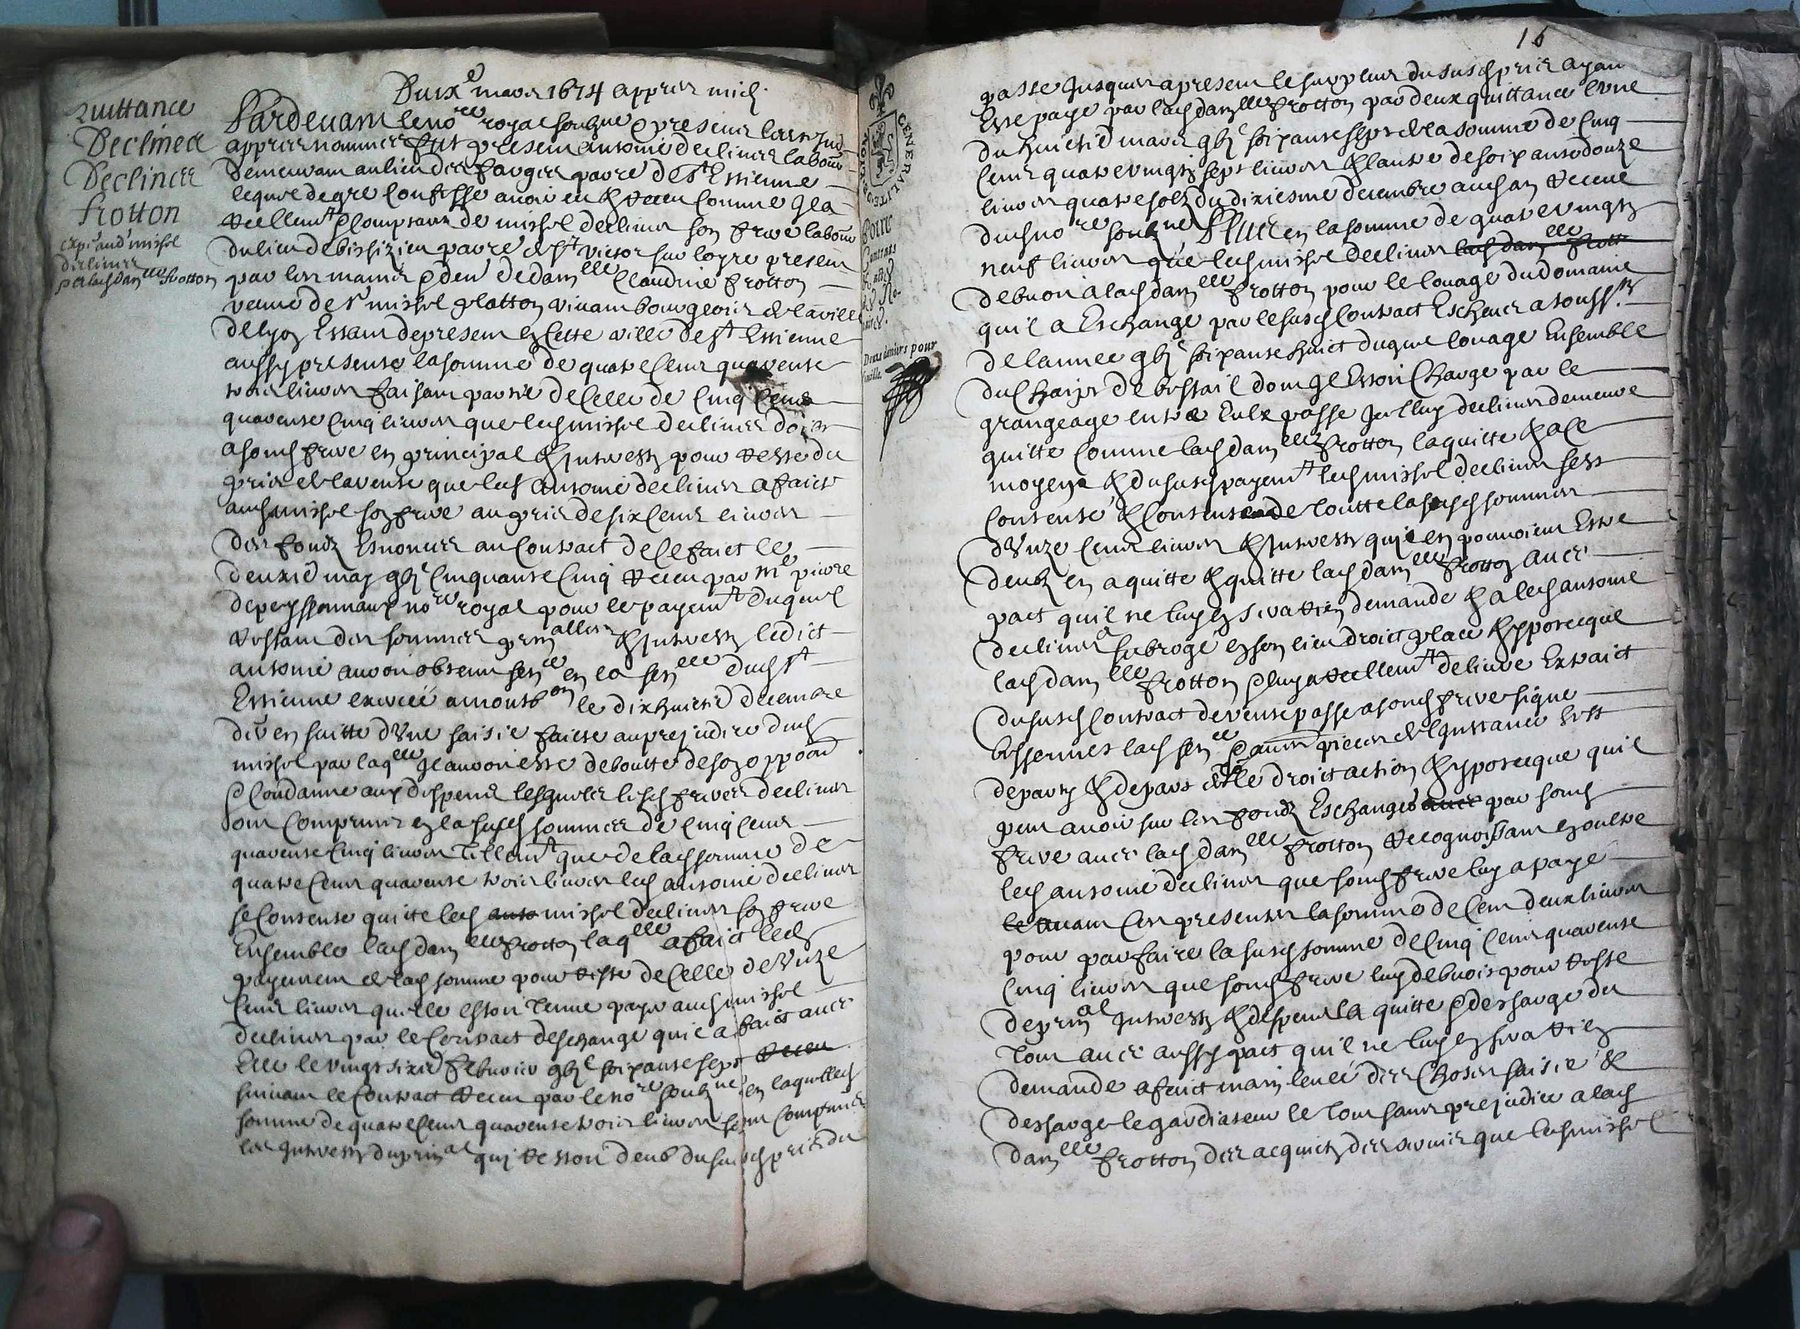 Du ix.e mars 1674 appres midy
quittance
Declines a
Declines
frotton
expé aud michel
declines
p lad dam.elle frotton
Pardevant le no.re royal soubzne et presens les tesmoings
appres nommes fut present antoine declines laboureur
demeurant au lieu des farges parre de St Estienne
lequel de gre confesse avoir eu & receu comme
reellemt comptant de michel declines son frere laboureur
du lieu de parre de St victor sur loyre present
par les mains & den de dam.elle claudine frotton
veufve de sr michel glatton vivant bourgeois de la ville
de lyon Estant de present en cette ville de St Estienne
aussy presente la somme de quatre cent quarente
trois livres faisant partie de celle de cinq cens
quarente cinq livres que led michel declines doibt
a sond frere en principal & interestz pour reste du
pris de la vente que led antoine declines a faict
aud michel son frere au pris de six cens livres
des fondz Enonces au contract de ce faict le
deuxie may gbic cinquante cinq receu par me pierre
depeyssonnaux no.re royal pour le payemt duquel
restant des sommes prin.alles & interestz ledict
antoine auroit obtenu sen.ce en la sen.cee dud St
Estienne exercée a montb.on le dixhuictie decembre
der en suitte d'une saisie faicte au prejudice dud
michel par laq.elle il auroit esté deboutte de son oppoon
& condanné aux despens lesquels lesd freres declines
ont comprins en la susd somme de cinq cens
quarente cinq livres tellemt que de lad somme de
quatre cent quarente trois livres led antoine declines
se contente quitte led anto michel declines son frere
Ensemble lad dam.elle frotton laq.elle a faict led
payement de lad somme pour reste de celle de unze
cens livres quelle estoit tenue payer aud michel
declines par le contract deschange quil a faict avec
Elle le vingt sixie febvrier gbic soixante sept receu
suivant le contract receu par le no.re soubzne en laquelle
somme de quatre cent quarente trois livres sont comprins
les interestz du prin.al qui restoit deub du susd pris du
GENERALITE
Pour
Contrats
& Actes
de No-
taires.
Deux deniers pour
feuille.
16
passé jusques a present le surplus du susd pris ayant
Esté payé par lad dam.elle frotton par deux quittances l'une
du huictie mars gbic soixante sept de la somme de cinq
cens quatre vingtz sept livres & l'autre de soixante douze
livres quatre solz du dixiesme decembre aud an receue
dud no.re soubzne Plus en la somme de quatre vingtz
neuf livres que led michel declines lad dam.elle frott
debvoit a lad dam.elle frotton pour le louage du domaine
quil a Eschangé par le susd contract Escheus a toussts
de l'annee gbic soixante huict duquel louage Ensemble
du chaipt de bestail dont il Estoit chargé par le
grangeage entre Eulx passé icelluy declines demeure
quitte comme lad dam.elle frotton la quitte & a ce
moyen & du susd payemt led michel declines sest
contenté & contente de toutte la susd somme
d'unze cens livres & interestz qui en pouvoient Estre
deubz en a quitté & quitte lad dam.elle frotton avec
pact qu'il ne luy en sera rien demandé & a led antoine
declines subrogé en son lieu droict place & ypotecque
lad dam.elle frotton & luy a reellemt delivré Extraict
du susd contract de vente passé a sond frere signé
bessonnet lad sen.ce & autres pieces de l'instance sest
departy & depart de tte droict action & ypotecque quil
peut avoir sur les fondz Eschangés avec par sond
frere avec lad dam.elle frotton recognoissant en oultre
led antoine declines que sond frere luy a payé
avant ces presentes la somme de cent deux livres
pour parfaire la susd somme de cinq cens quarente
cinq livres que sond frere luy debvoit pour reste
de prin.al interestz & despens la quitte & descharge du
tout avec aussy pact qu'il ne luy en sera rien
demandé a faict main levée des choses saisie &
descharge le gardiateur le tout sans prejudice a lad
dam.elle frotton des acquitz des servis que led michel